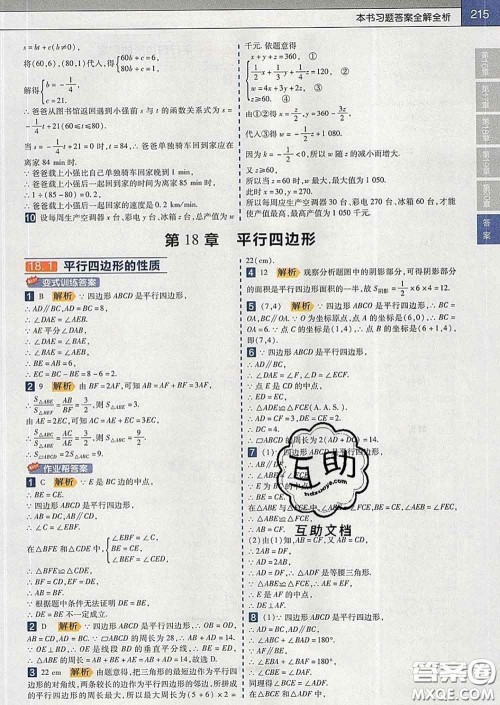 本书习题答案全解全析 215
s=bt+c(b≠0),
将(60,6),(80,1)代入,得{60b+c=6, 80b+c=1,
解得{b=-1/4, c=21.
∴爸爸从图书馆返回遇到小强前 s 与 t 的函数关系式为
s=-1/4t+21(60≤t≤80).
当 s=0 时,-1/4t+21=0,∴t=84.
∴爸爸单独骑车回到家应在
离家 84 min 时.
∴爸爸载上小强比自己单独骑车回家晚到 1 min.
∴爸爸载上小强后一起回到家的时刻是离家 85 min 时.
∴1÷(85-80)=0.2.
∴爸爸载上小强后一起回家的速度是 0.2 km/min.
10 设每周生产空调器 x 台、彩电 y 台、冰箱 z 台,产值为 w
千元.依题意得
{x+y+z=360, ①
1/2x+1/3y+1/4z=120, ②
w=4x+3y+2z, ③
z≥60. ④
由①②得 x=z/2,y=360-3z/2,
代入③得 w=-1/2z+1 080.
因为 k=-1/2<0,所以 w 随 z 的减小而增大.
又 z≥60,
所以当 z=60 时,w最大=1 050.
此时 x=30,y=270.
故当每周生产空调器 30 台、彩电 270 台、冰箱 60 台时,
才能使产值最高,最高产值是 1 050 千元.
第16章
第17章
第18章
第19章
第20章
答案
第 18 章 平行四边形
18.1 平行四边形的性质
变式训练答案
1 B 解析 ∵四边形 ABCD 是平行四边形,
∴AD∥BC,AD=BC,
∴∠DAE=∠AEB.
∵AE 平分∠DAB,
∴∠DAE=∠EAB,
∴∠EAB=∠AEB,∴AB=BE.
∴EC=BC-BE=8-6=2.
2 9 解析 由 BF=2AF,可知 AB=AF+BF=3AF.
∵S△ABE/S△BEF=AB/BF=3/2,则 S△ABE=3/2.
由 AE=2EC,可知 AC=AE+EC=3EC.
∵S△ABC/S△ABE=AC/AE=3/2,则 S△ABC=9/2.
作业帮答案
1 C 解析 ∵E 是 BC 边的中点,
∴BE=CE.
∵AB=BF,AB=CD,∴BF=CD.
∵AB∥CD,
∴∠C=∠EBF.
在△BFE 和△CDE 中,{∠EBF=∠C, BE=CE, BF=CD,
∴△BFE≌△CDE,
∴∠F=∠CDF.
根据题中条件无法证明
DE=BE.
2 D 解析 ∵四边形 ABCD 是平行四边形,∴OB=OD,
AB=CD,AD=BC.∵▱ABCD 的周长为 28,∴AB+AD=14.
∵OE⊥BD,∴OE 是线段 BD 的垂直平分线,∴BE=
DE,∴△ABE 的周长为 AB+BE+AE=AB+AD=14.
3 22 cm 解析 由题意得,把三角形的最短边作为平行四
边形的对角线,两条较长的边作为平行四边形的邻边,所拼
成的平行四边形的周长最大,所以最大周长为(5+6)×2=
22(cm).
4 12 解析 观察分析题图中的阴影部分,可得阴影部分
面积是平行四边形面积的一半,故 S阴影=1/2×6×4=12.
5 (7,4) 解析 ∵四边形 ABCO 是平行四边形,∴BC=
OA,BC∥OA.∵O 为坐标原点,点 A 的坐标是(6,0),∴BC=
OA=6.∵点 C 的坐标是(1,4),∴点 B 的坐标是(6+1,4),
即(7,4).
6 ∵四边形 ABCD 是平行四边形,
∴AD∥BC,
∴∠DAE=∠F,∠D=∠ECF.
∵点 E 是 CD 的中点,
∴DE=CE,
∴△ADE≌△FCE(A.A.S.),
∴AD=CF=3,DE=CE=2,
∴DC=4,
∴▱ABCD 的周长为 2(AD+DC)=14.
7 (1)∵四边形 ABCD 是平行四边形,
∵E 为 BC 的中点,
∴△ABE≌△FCE,
∴AB=CF.
(2)由(1)知 AB=CF,又 AB=CD,
∴DF=2AB.
∴2AB=AD,
∴AD=DF,
∴△ADF 是等腰三角形.
∵△ABE≌△FCE,
∴AE=EF,
∴DE⊥AF.
8 (1)∵四边形 ABCD 是平行四边形,
∴AD=BC,AD∥BC,
互助
hdzuoye.com
互助文档
答案圈
MXQE.COM